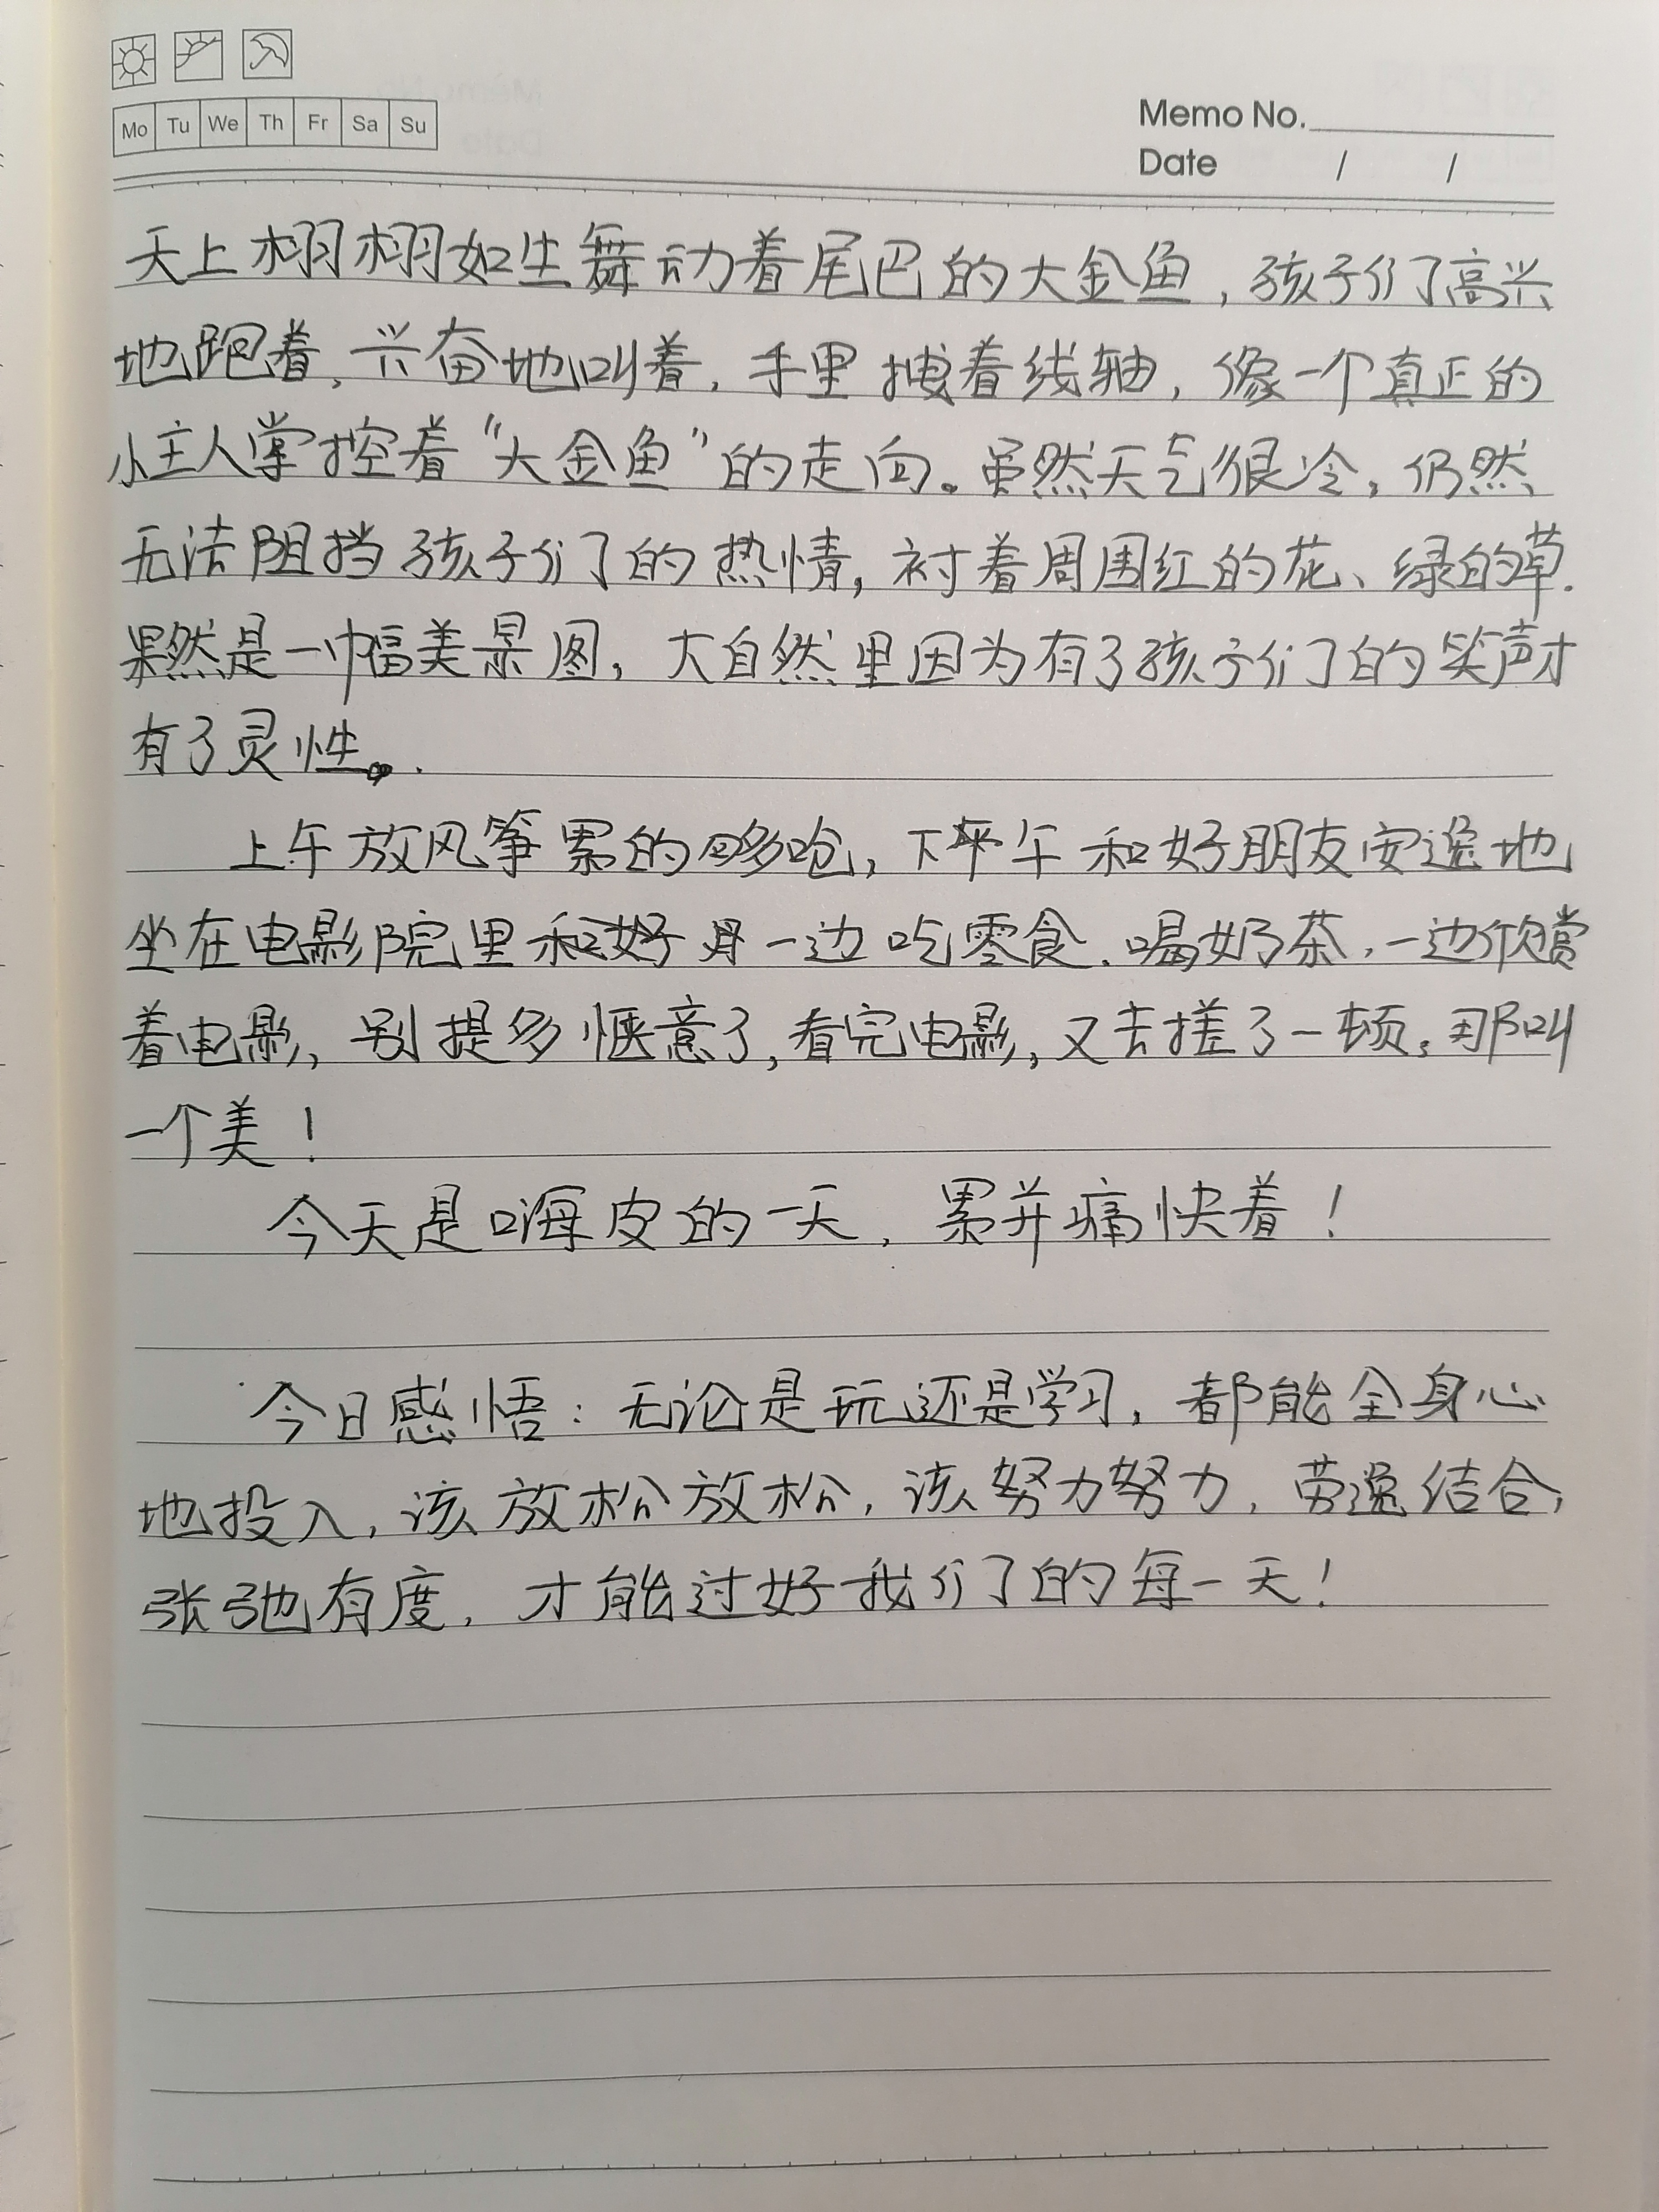 Mo Tu We Th Fr Sa Su
Memo No.
Date / /
天上栩栩如生舞动着尾巴的大金鱼，孩子们高兴
地跑着，兴奋地叫着，手里拽着线轴，像一个真正的
小主人掌控着“大金鱼”的走向。虽然天气很冷，仍然
无法阻挡孩子们的热情，衬着周围红的花、绿的草.
果然是一幅美景图，大自然里因为有了孩子们的笑声才
有了灵性。
上午放风筝累的够呛，下午和好朋友安逸地
坐在电影院里一边吃零食、喝奶茶，一边欣赏
着电影，别提多惬意了，看完电影，又去搓了一顿，那叫
一个美！
今天是嗨皮的一天，累并痛快着！
今日感悟：无论是玩还是学习，都能全身心
地投入，该放松放松，该努力努力，劳逸结合，
张弛有度，才能过好我们的每一天！